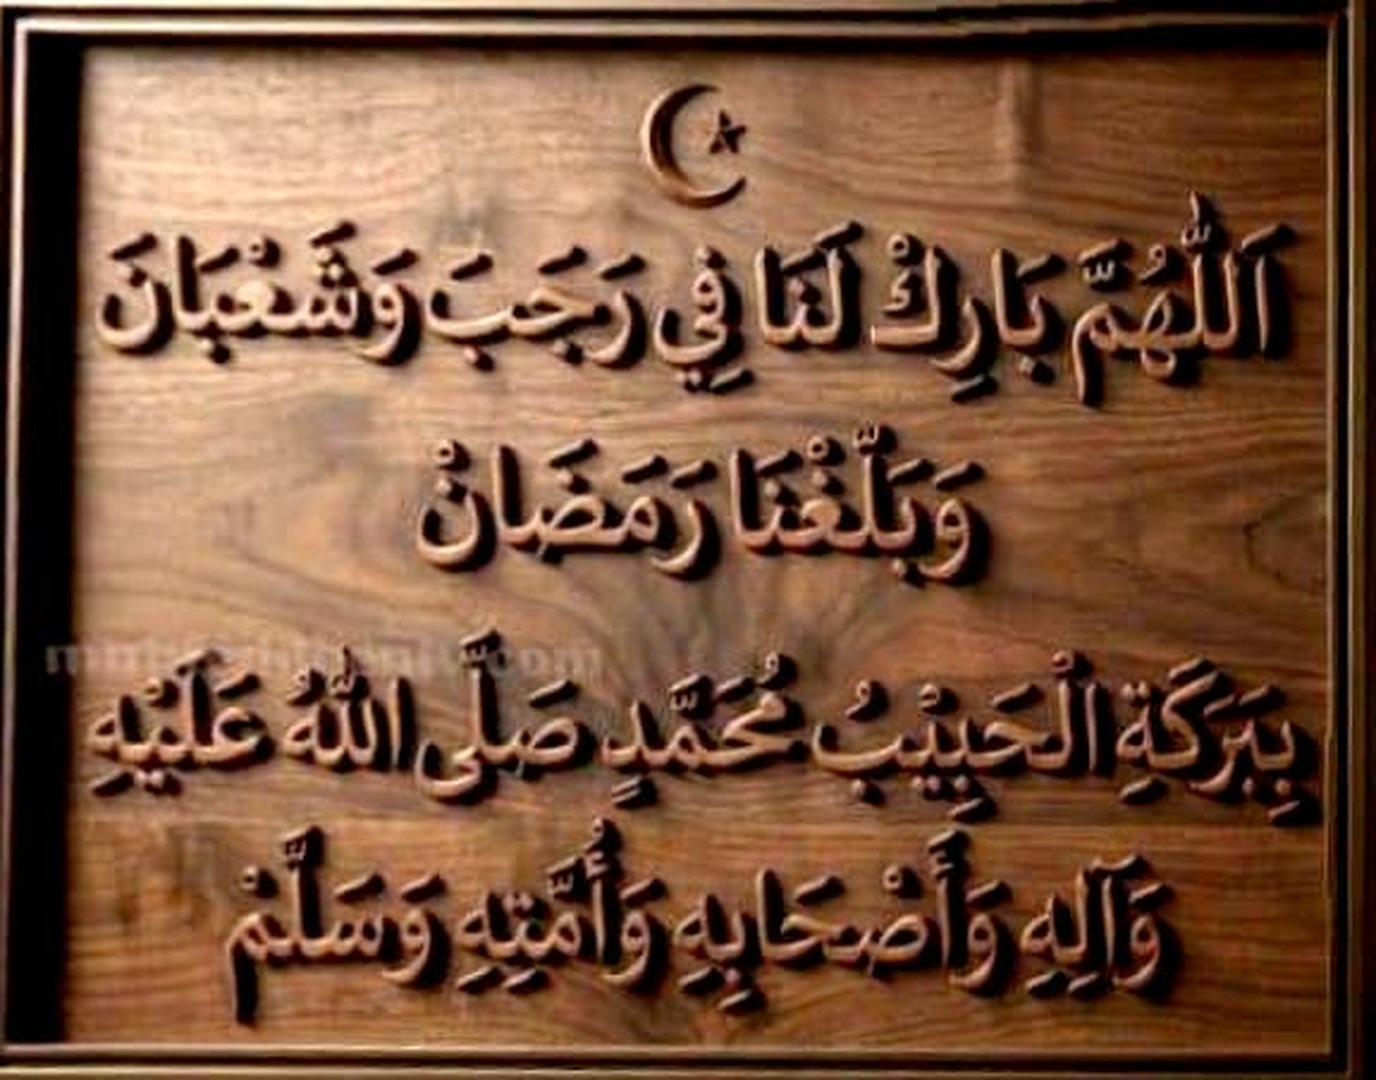 اَللّٰهُمَّ بَارِكْ لَنَا فِي رَجَبَ وَشَعْبَانَ
وَبَلِّغْنَا رَمَضَانْ
بِبَرَكَةِ الْحَبِيْبُ مُحَمَّدٍ صَلَّى اللهُ عَلَيْهِ
وَآلِهِ وَأَصْحَابِهِ وَأُمَّتِهِ وَسَلَّمْ